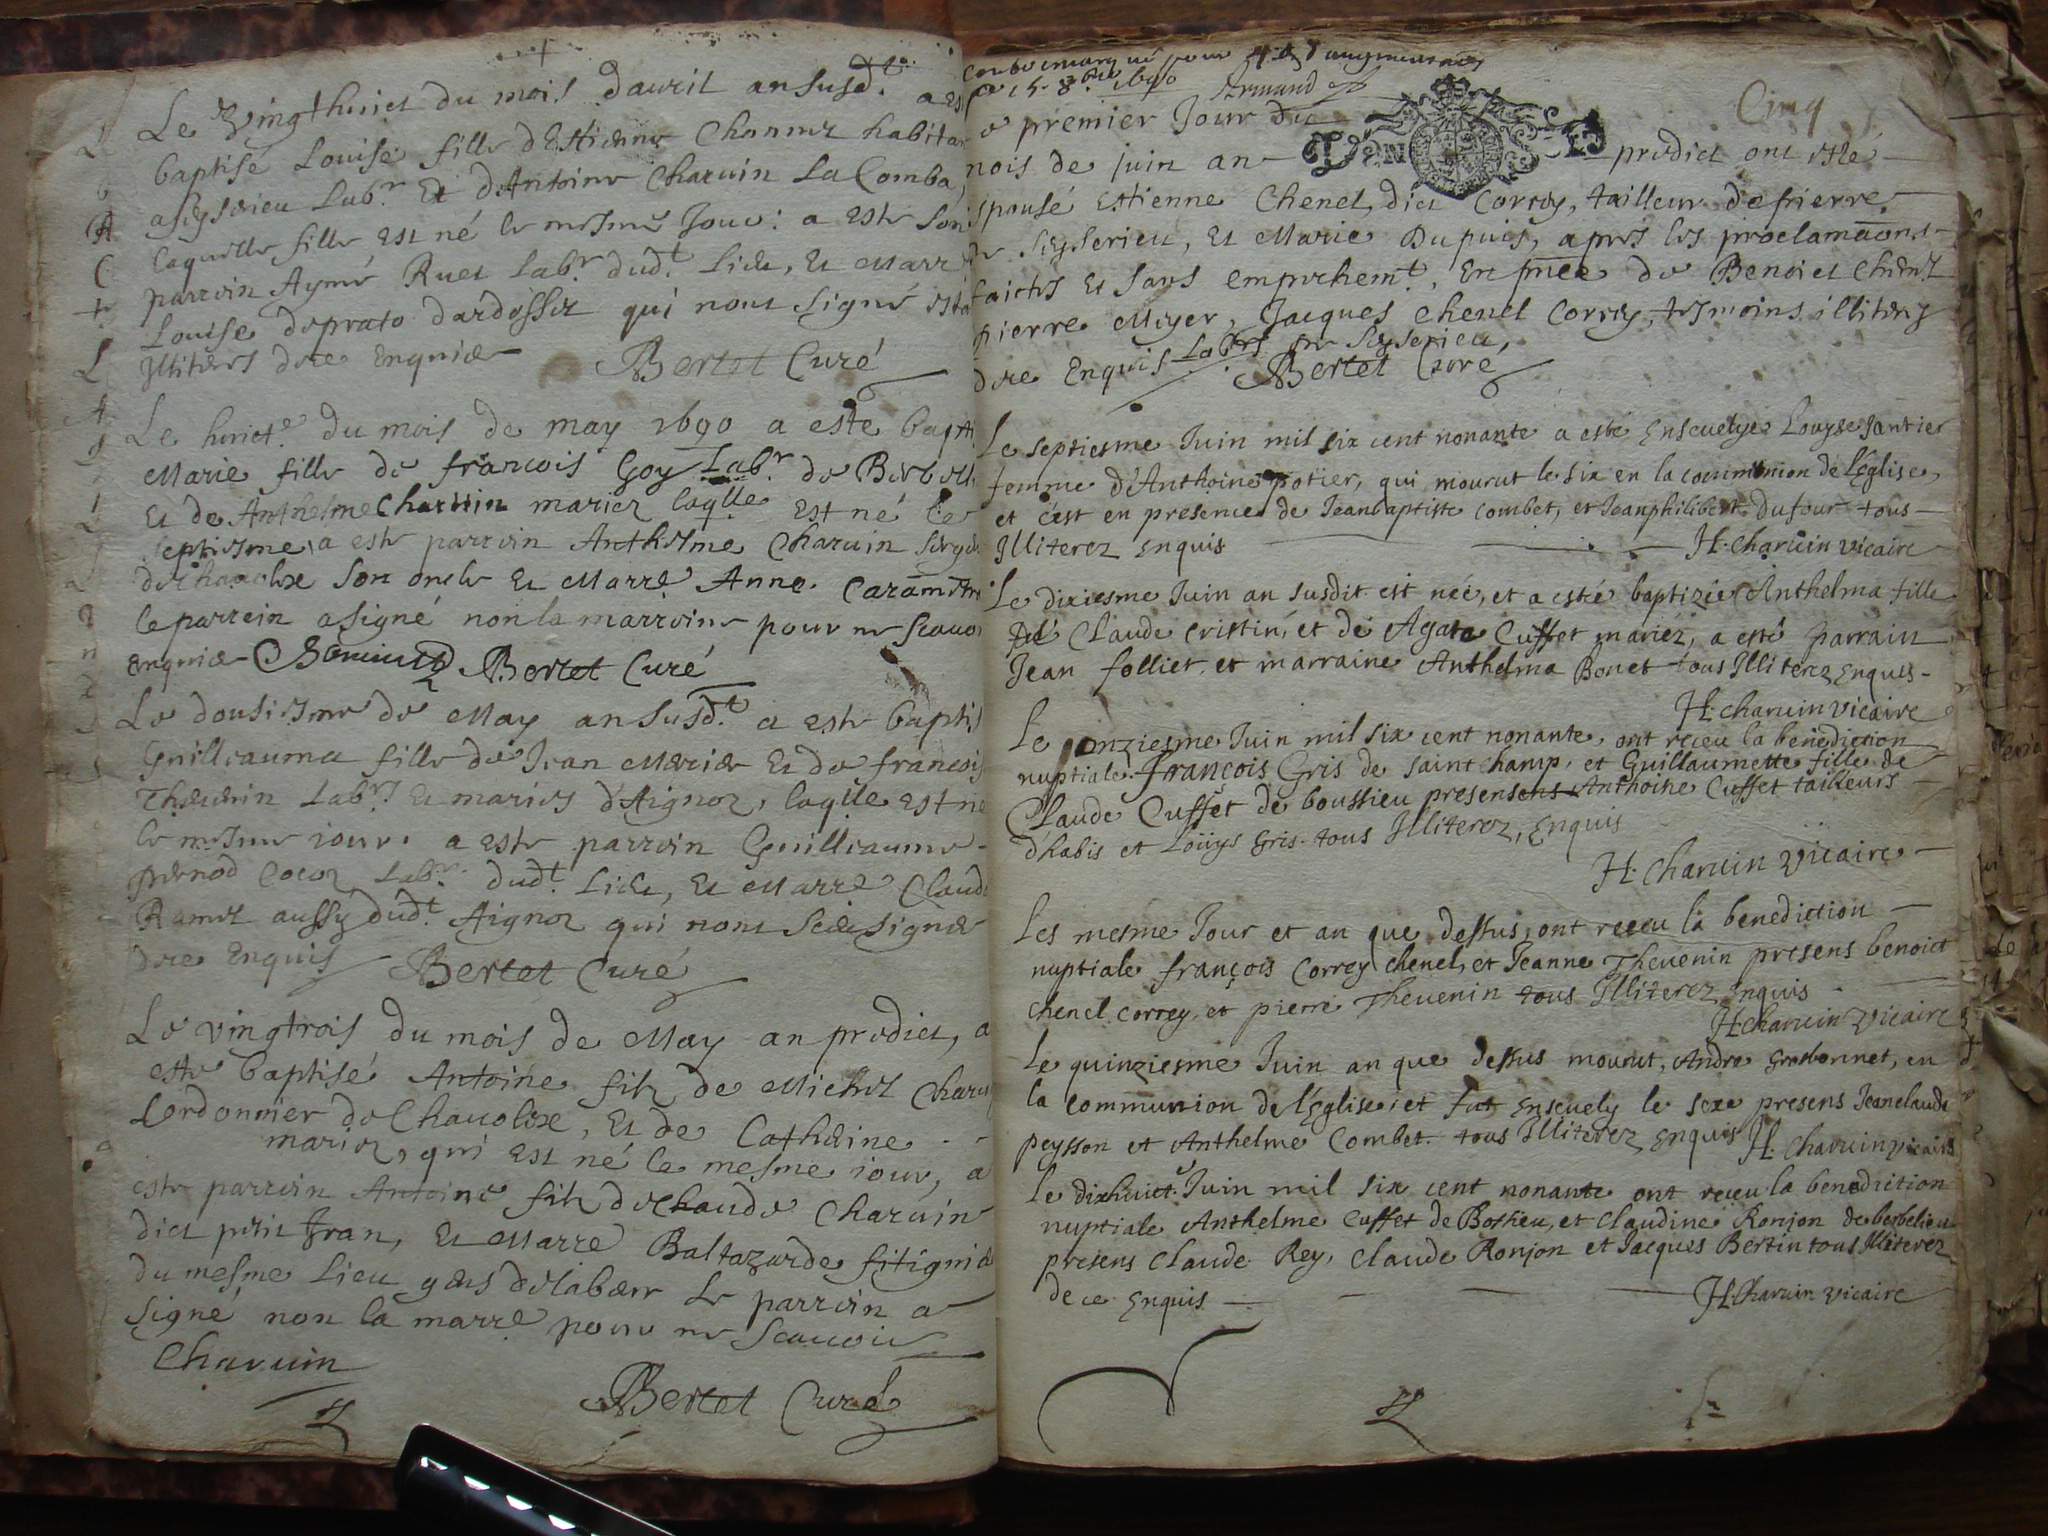 Le vingthuict du mois davril an susd.t a es
baptisé Louise fille dEstienne Chenel habitan
a seyserieu Lab.r Et dAntoine Charvin La Comba
laquelle fille est né le mesme Jour: a este son
parrein Aymé Ruet Lab.r dud.t lieu, Et Marr
Louise deprato dardosset qui nont signé esta
Illiteres dece Enquis
Bertet Curé
Le huict.e du mois de may 1690 a este bapt
Marie fille de francois Goy Lab.r de
Et de Anthelme Charvin mariez laqlle est né le
septiesme a este parrein Anthelme Charvin
de son oncle Et Marre Anne
le parrein a signé non la marreine pour ne scavoi
enquise Bertet Curé
Le dousiesme de May an susd.t a este baptis
Guillauma fille de Jean Et de francois
Thevenin Lab.rs Et maries d'Aignoz, laqlle est ne
le mesme iour. a este parrein Guilleaume
Lab.r dud.t Lieu, Et Marre Claud
Ramel aussy dud.t Aignoz qui nont signé
dece Enquis Bertet Curé
Le vingtrois du mois de May an predict, a
este baptisé Antoine filz de Michel Charv
Cordonnier de, Et de Catherine
mariez, qui est né le mesme iour, a
este parrein Antoine filz de Claude Charvin
dict petit Jean, Et Marre Baltazarde fitignie
du mesme Lieu gens de labeur Le parrein a
signé non la marre pour ne scavoir
Charvin
Bertet Curé
ce 15. 8bre 1690 Armand
Cinq
e premier Jour du
mois de juin an GEN predict ont esté
spousé Estienne Chenel, dict Correy, tailleur de pierre
de Seyserieu, Et Marie Dupuis, apres les proclamāons
faictes Et sans empechem.t, En pñce de Benoict Chenel
pierre Meyer, Jacques Chenel Correy, tesmoins illiteres
dece Enquis Lab.rs de Seyserieu,
Bertet Curé
Le septiesme Juin mil six cent nonante a esté Ensevelye Louyse Jantier
femme d'Anthoine potier, qui mourut le six en la communion de l'Eglise,
et c'est en presence de Jeanbaptiste Combet, et Jeanphilibert dufour tous
Illiterez Enquis H. Charvin vicaire
Le dixiesme Juin an susdit est née, et a esté baptizée Anthelma fille
de Claude Cristin, et de Agate Cuffet mariez, a esté parrain
Jean folliet, et marraine Anthelma Bonet tous Illiterez Enquis
H. Charvin vicaire
Le onziesme Juin mil six cent nonante, ont receu la benediction
nuptiale François Gris de Saint champ, et Guillaumette fille de
Claude Cuffet de boussieu presens Anthoine Cuffet tailleurs
d'habis et Loüys Gris tous Illiterez, Enquis
H. Charvin vicaire
Les mesme Jour et an que dessus, ont receu la benediction
nuptiale françois Correy Chenel, et Jeanne Thevenin presens benoict
Chenel Correy, et pierre Thevenin tous Illiterez Enquis
H. Charvin vicaire
Le quinziesme Juin an que dessus mourut, Andre Grosbonnet, en
la communion de l'Eglise, et fut Ensevely le seze presens Jeanclaude
peysson et Anthelme Combet tous Illiterez Enquis H. Charvin vicaire
Le dixhuict Juin mil six cent nonante ont receu la benediction
nuptiale Anthelme Cuffet de Bossieu, et Claudine Ronjon de berbelieu
presens Claude Rey, Claude Ronjon et Jacques Bertin tous Illiterez
de ce Enquis H. Charvin vicaire